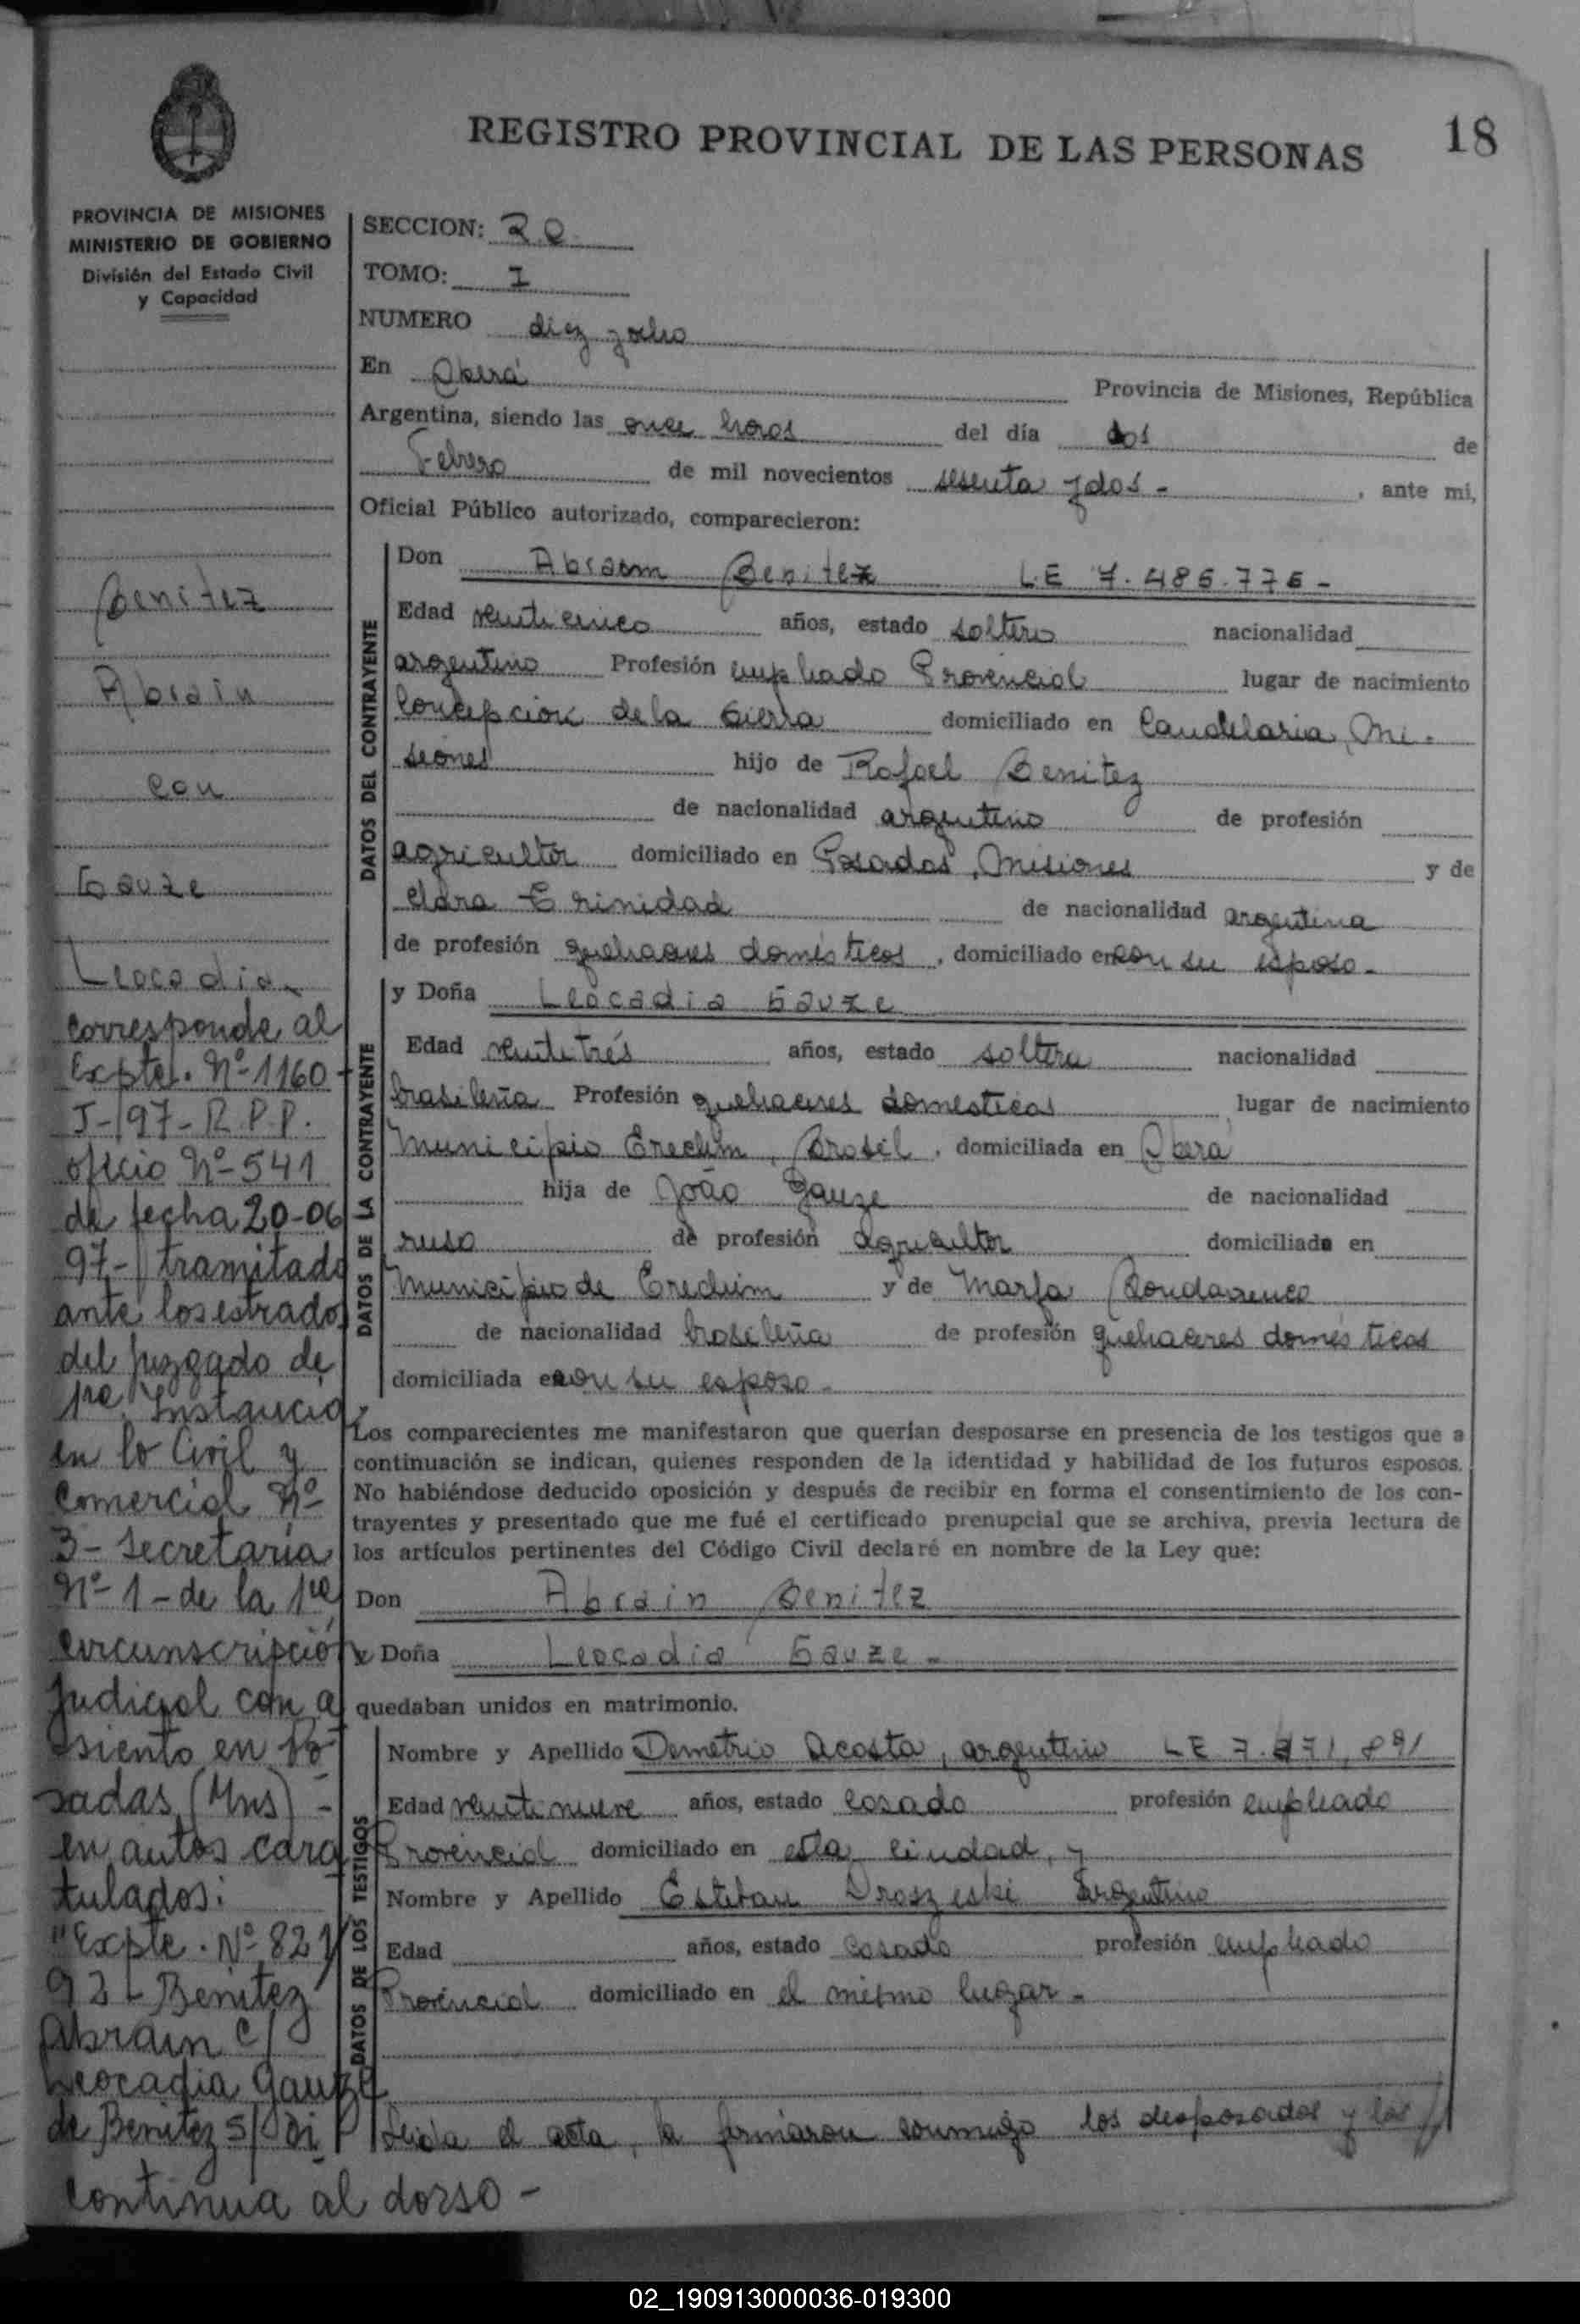 REGISTRO PROVINCIAL DE LAS PERSONAS
18
PROVINCIA DE MISIONES
MINISTERIO DE GOBIERNO
División del Estado Civil
y Capacidad
Benitez
Abrain
con
Gauze
Leocadia
corresponde al
Expte. Nº 1160-
J-197-R.P.P.
oficio Nº-541
de fecha 20-06
97-tramitado
ante los estrados
del juzgado de
1ra Instancia
en lo Civil y
Comercial Nº
3-Secretaria
Nº-1-de la 1ra
circunscripción
Judicial con a
siento en Po-
sadas (Mns)-
en autos cara
tulados:
"Expte. Nº-821/
92-Benitez
Abrain c/
Leocadia Gauze
de Benitez s/Di
continua al dorso-
SECCION: R.O.
TOMO: I
NUMERO diez y ocho
En Oberá Provincia de Misiones, República
Argentina, siendo las once horas del día dos de
Febrero de mil novecientos sesenta y dos- , ante mi,
Oficial Público autorizado, comparecieron:
DATOS DEL CONTRAYENTE
Don Benitez L.E 7.485.775-
Edad veinticinco años, estado soltero nacionalidad
argentino Profesión empleado Provincial lugar de nacimiento
Concepción de la Sierra domiciliado en Candelaria, Mi-
siones hijo de Rafael Benitez
de nacionalidad argentino de profesión
agricultor domiciliado en Posadas, Misiones y de
Clara Trinidad de nacionalidad argentina
de profesión quehaceres domésticos, domiciliado en con su esposo-
DATOS DE LA CONTRAYENTE
y Doña Leocadia Gauze
Edad veintitrés años, estado soltera nacionalidad
brasileña Profesión quehaceres domésticos lugar de nacimiento
Municipio Erechim, Brasil, domiciliada en Oberá
hija de João Gauze de nacionalidad
ruso de profesión agricultor domiciliada en
Municipio de Erechim y de Marfa
de nacionalidad brasileña de profesión quehaceres domésticos
domiciliada en con su esposo-
Los comparecientes me manifestaron que querían desposarse en presencia de los testigos que a
continuación se indican, quienes responden de la identidad y habilidad de los futuros esposos.
No habiéndose deducido oposición y después de recibir en forma el consentimiento de los con-
trayentes y presentado que me fué el certificado prenupcial que se archiva, previa lectura de
los artículos pertinentes del Código Civil declaré en nombre de la Ley que:
Don Abrain Benitez
y Doña Leocadia Gauze-
quedaban unidos en matrimonio.
DATOS DE LOS TESTIGOS
Nombre y Apellido Demetrio Acosta, argentino LE
Edad veintinueve años, estado casado profesión empleado
Provincial domiciliado en esta ciudad, y
Nombre y Apellido Esteban argentino
Edad años, estado casado profesión empleado
Provincial domiciliado en el mismo lugar-
Leída el acta, la firmaron conmigo los desposados y los
02_190913000036-019300